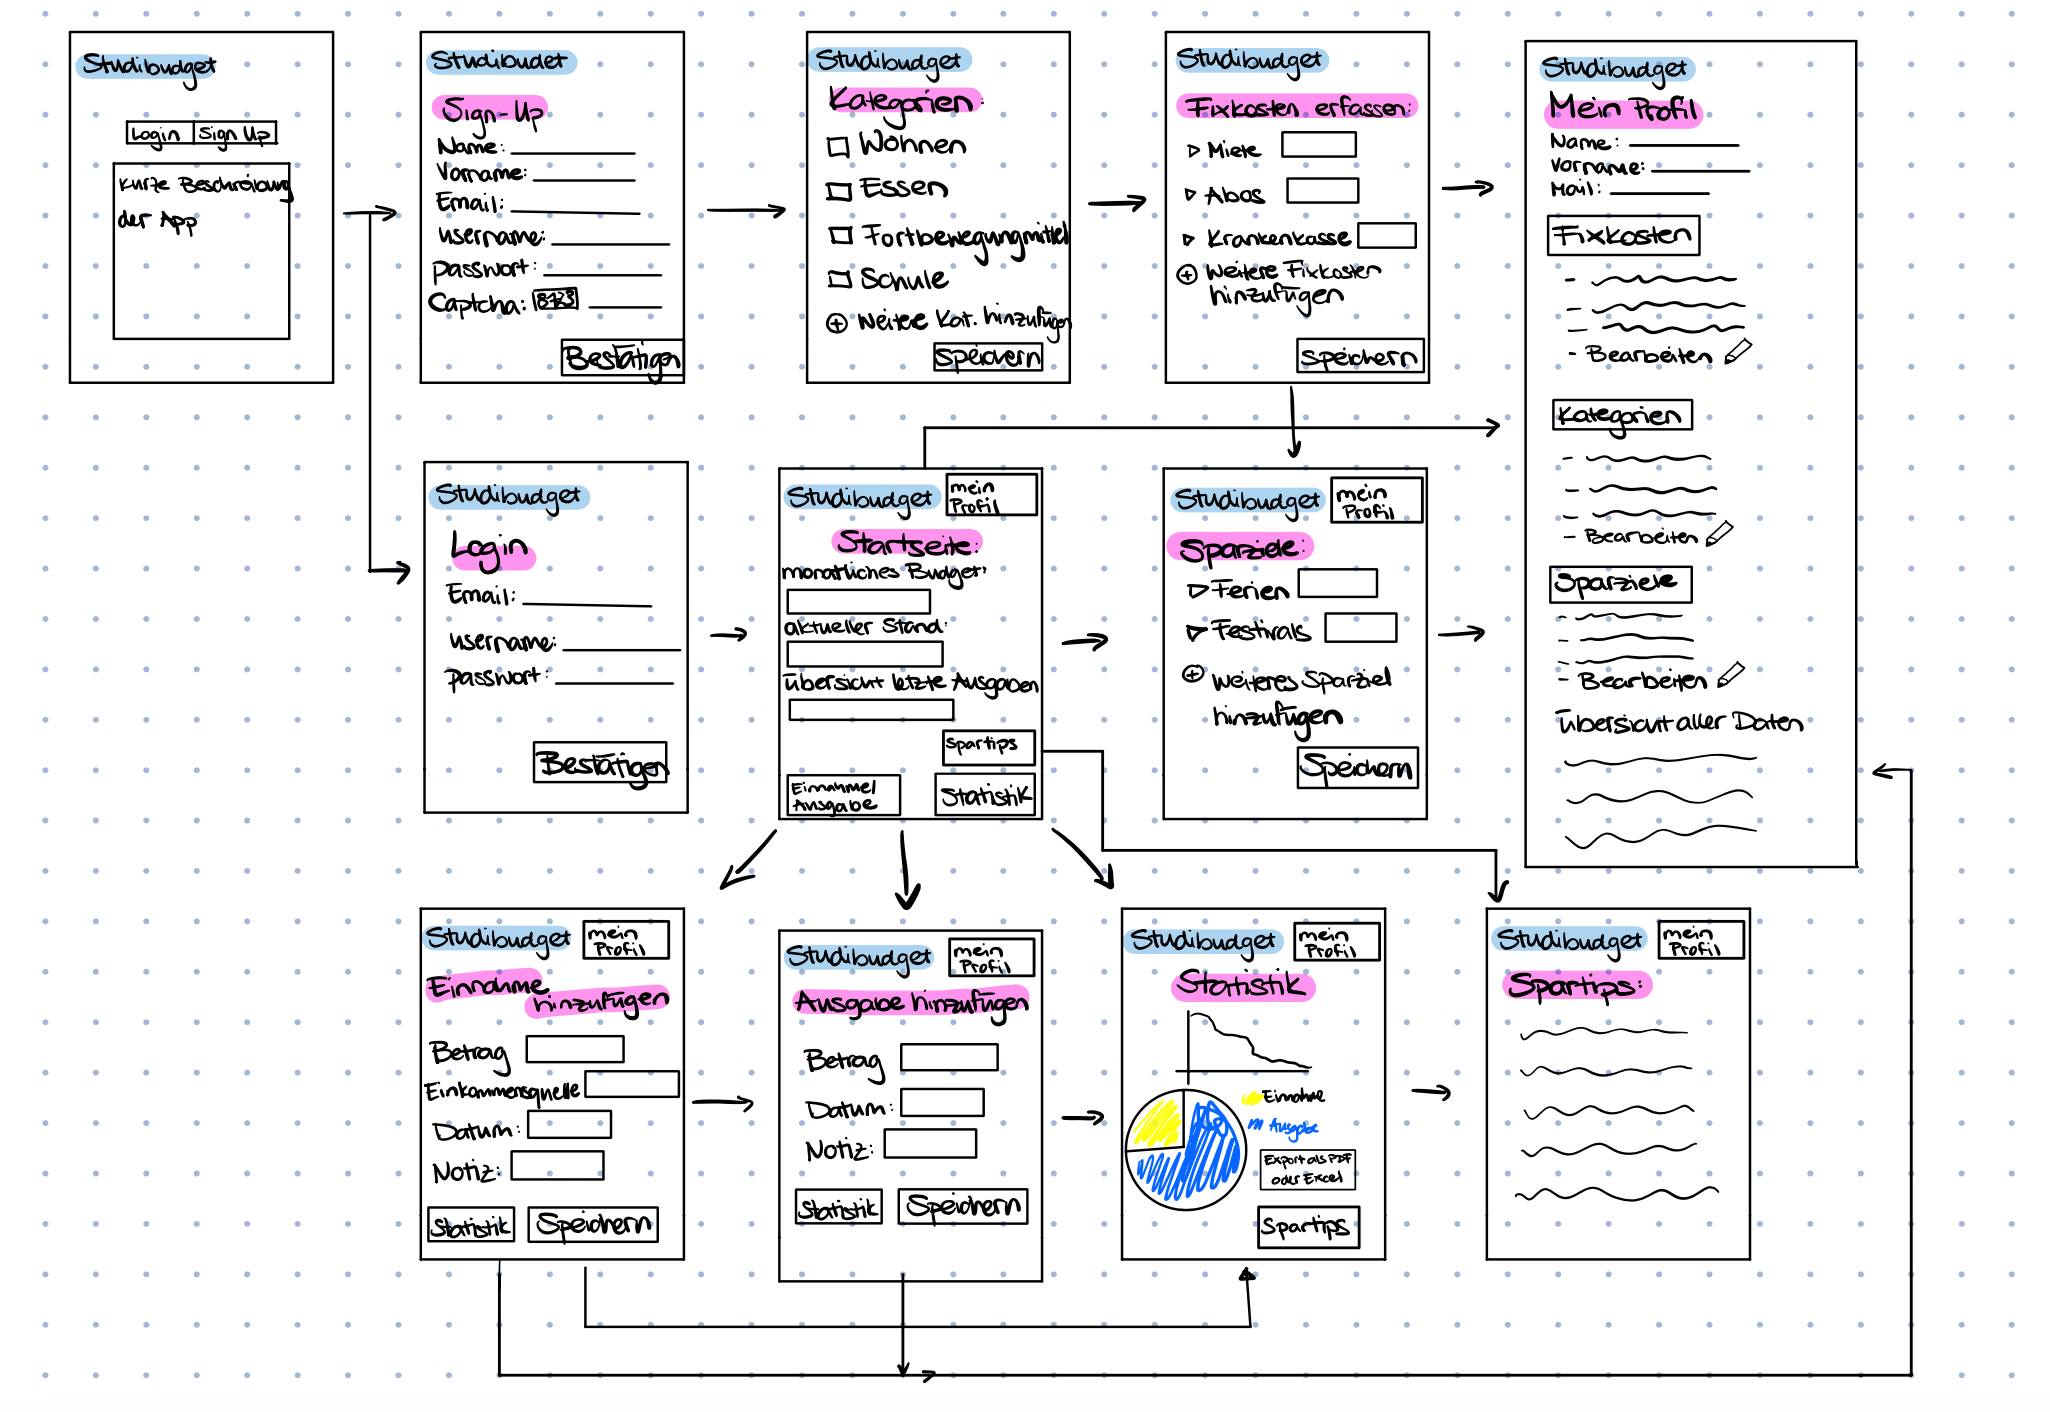 Studibudget
Login
Sign Up
Kurze Beschreibung
der App
Studibudet
Sign-Up
Name:
Vorname:
Email:
username:
passwort:
Captcha: 8723
Bestätigen
Studibudget
Kategorien:
Wohnen
Essen
Fortbewegungmittel
Schule
Weitere Kat. hinzufügen
Speichern
Studibudget
Fixkosten erfassen:
Miete
Abos
Krankenkasse
Weitere Fixkosten
hinzufügen
Speichern
Studibudget
Mein Profil
Name:
Vorname:
Mail:
Fixkosten
- Bearbeiten
Kategorien
- Bearbeiten
Sparziele
- Bearbeiten
Übersicht aller Daten
Studibudget
Login
Email:
username:
passwort:
Bestätigen
Studibudget
mein
Profil
Startseite:
monatliches Budget:
aktueller Stand:
Übersicht letzte Ausgaben
Spartips
Einnahme/
Ausgabe
Statistik
Studibudget
mein
Profil
Sparziele:
Ferien
Festivals
Weiteres Sparziel
hinzufügen
Speichern
Studibudget
mein
Profil
Einnahme
hinzufügen
Betrag
Einkommensquelle
Datum:
Notiz:
Statistik
Speichern
Studibudget
mein
Profil
Ausgabe hinzufügen
Betrag
Datum:
Notiz:
Statistik
Speichern
Studibudget
mein
Profil
Statistik
Einnahme
Ausgabe
Export als PDF
oder Excel
Spartips
Studibudget
mein
Profil
Spartips: